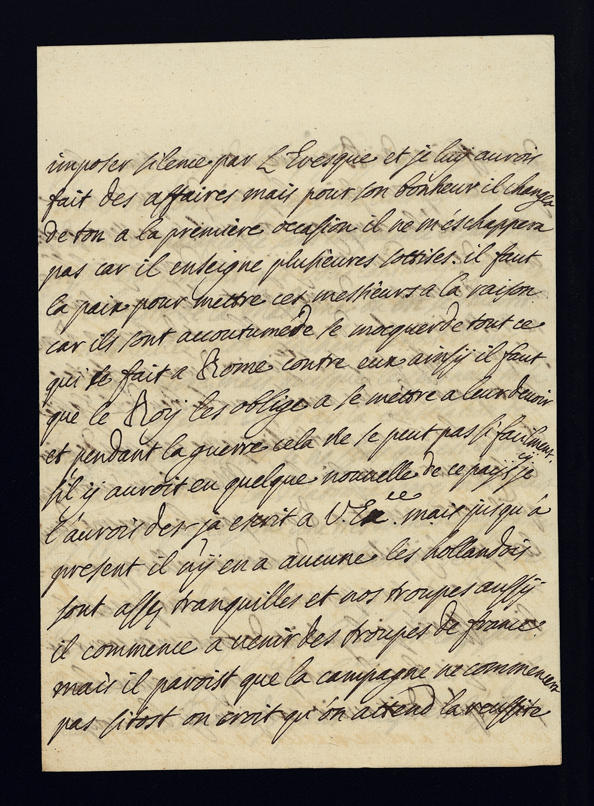 imposer silence par L'Evesque et je luy aurois
fait des affaires mais pour son bonheur il changea
de ton a la première ocasion il ne m'eschappera
pas car il enseigne plusieures sottises. il faut
la paix pour mettre ces messieurs a la raison
car ils sont accoutumé de se mocquer de tout ce
qui se fait a Rome contre eux ainsy il faut
que le Roÿ les oblige a se mettre a leur devoir
et pendant la guerre cela ne se peut pas si facilment.
s'il ÿ auroit eu quelque nouvelle de ce païs cÿ je
l'aurois des-ja escrit a V. Ex.ce mais jusqu'à
present il n'ÿ en a aucune les hollandois
sont assez tranquilles et nos troupes aussÿ
il commence a venir des troupes de france
mais il paroist que la campagne ne commencera
pas sitost on croit qu'on attend la reussite